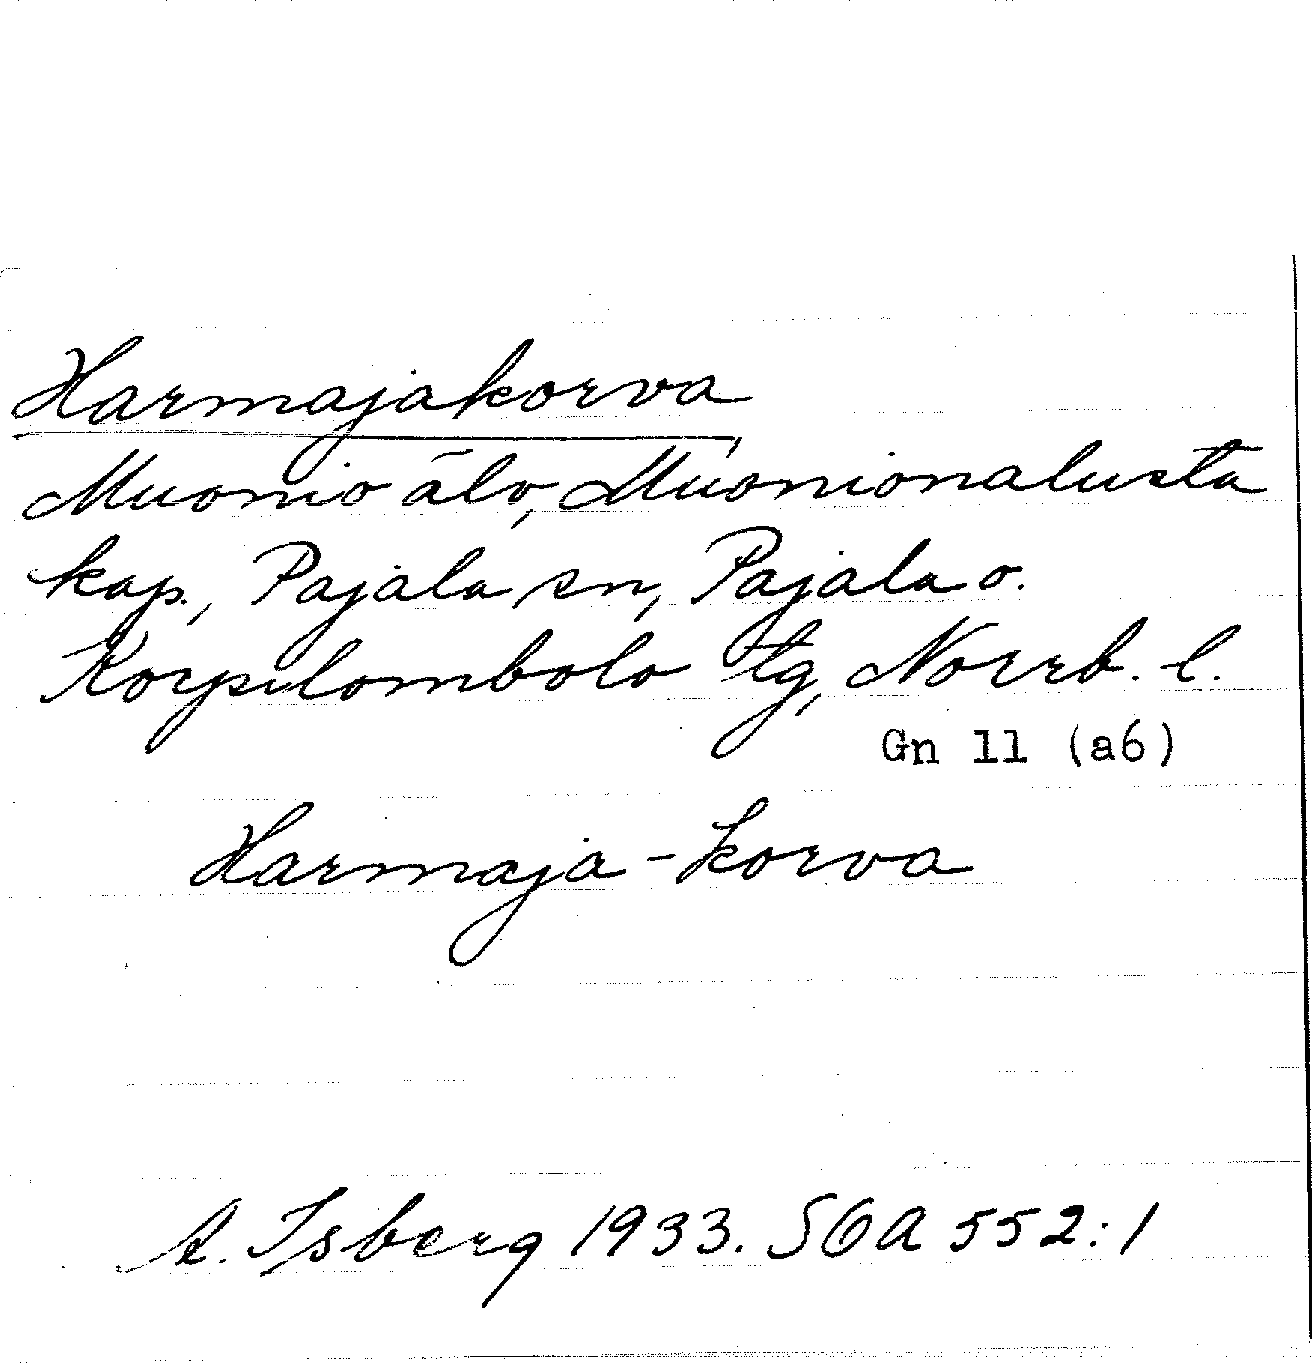 Harmajakorva
Muonio älv, Muonionalusta
kap., Pajala sn, Pajala o.
Korpilombolo tg, Norrb. l.
Gn 11 (a6)
Harmaja-korva
A. Isberg 1933. SOA 552:1